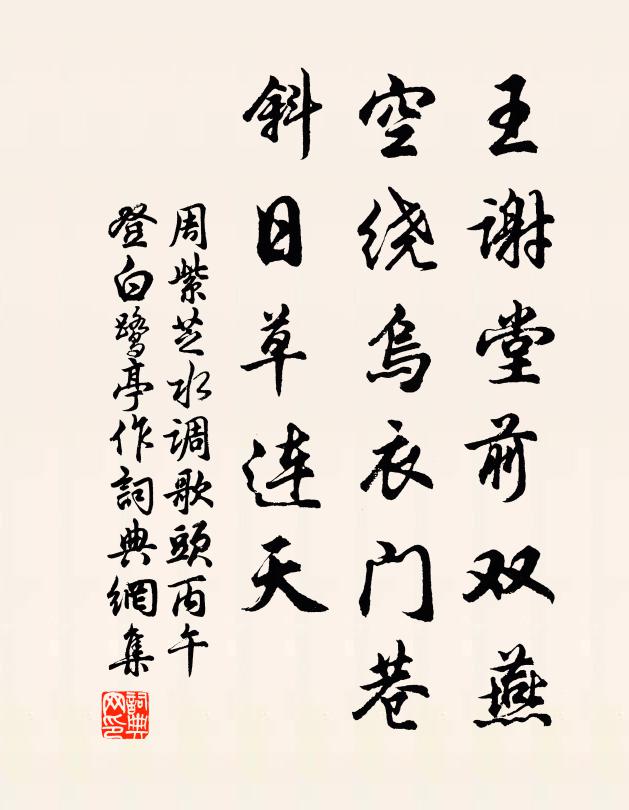 王谢堂前双燕
空绕乌衣门巷
斜日草连天
周紫芝水调歌頭丙午
登白鹭亭作詞典網集
詞典网印